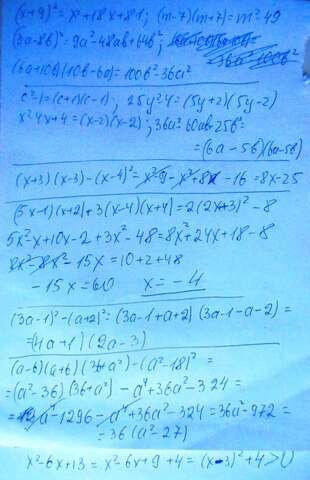 (x+9)² = x²+18x+81; (m-7)(m+7)=m²-49
(3a-8b)² = 9a²-48ab+64b²;
(6a+10b)(10b-6a)=100b²-36a²
c²-1=(c+1)(c-1); 25y²-4=(5y+2)(5y-2)
x²-4x+4=(x-2)(x-2); 36a²-60ab+25b²=
=(6a-5b)(6a-5b)
(x+3)(x-3)-(x-4)²= x²-9-x²+8x-16=8x-25
(5x-1)(x+2)+3(x-4)(x+4)=2(2x+3)²-8
5x²-x+10x-2+3x²-48=8x²+24x+18-8
8x²-8x²-15x=10+2+48
-15x=60 x=-4
(3a-1)²-(a+2)²=(3a-1+a+2)(3a-1-a-2)=
=(4a+1)(2a-3)
(a-6)(a+6)(36+a²)-(a²-18)²=
=(a²-36)(36+a²)-a⁴+36a²-324=
=a⁴-1296-a⁴+36a²-324=36a²-972=
=36(a²-27)
x²-6x+13=x²-6x+9+4=(x-3)²+4>0